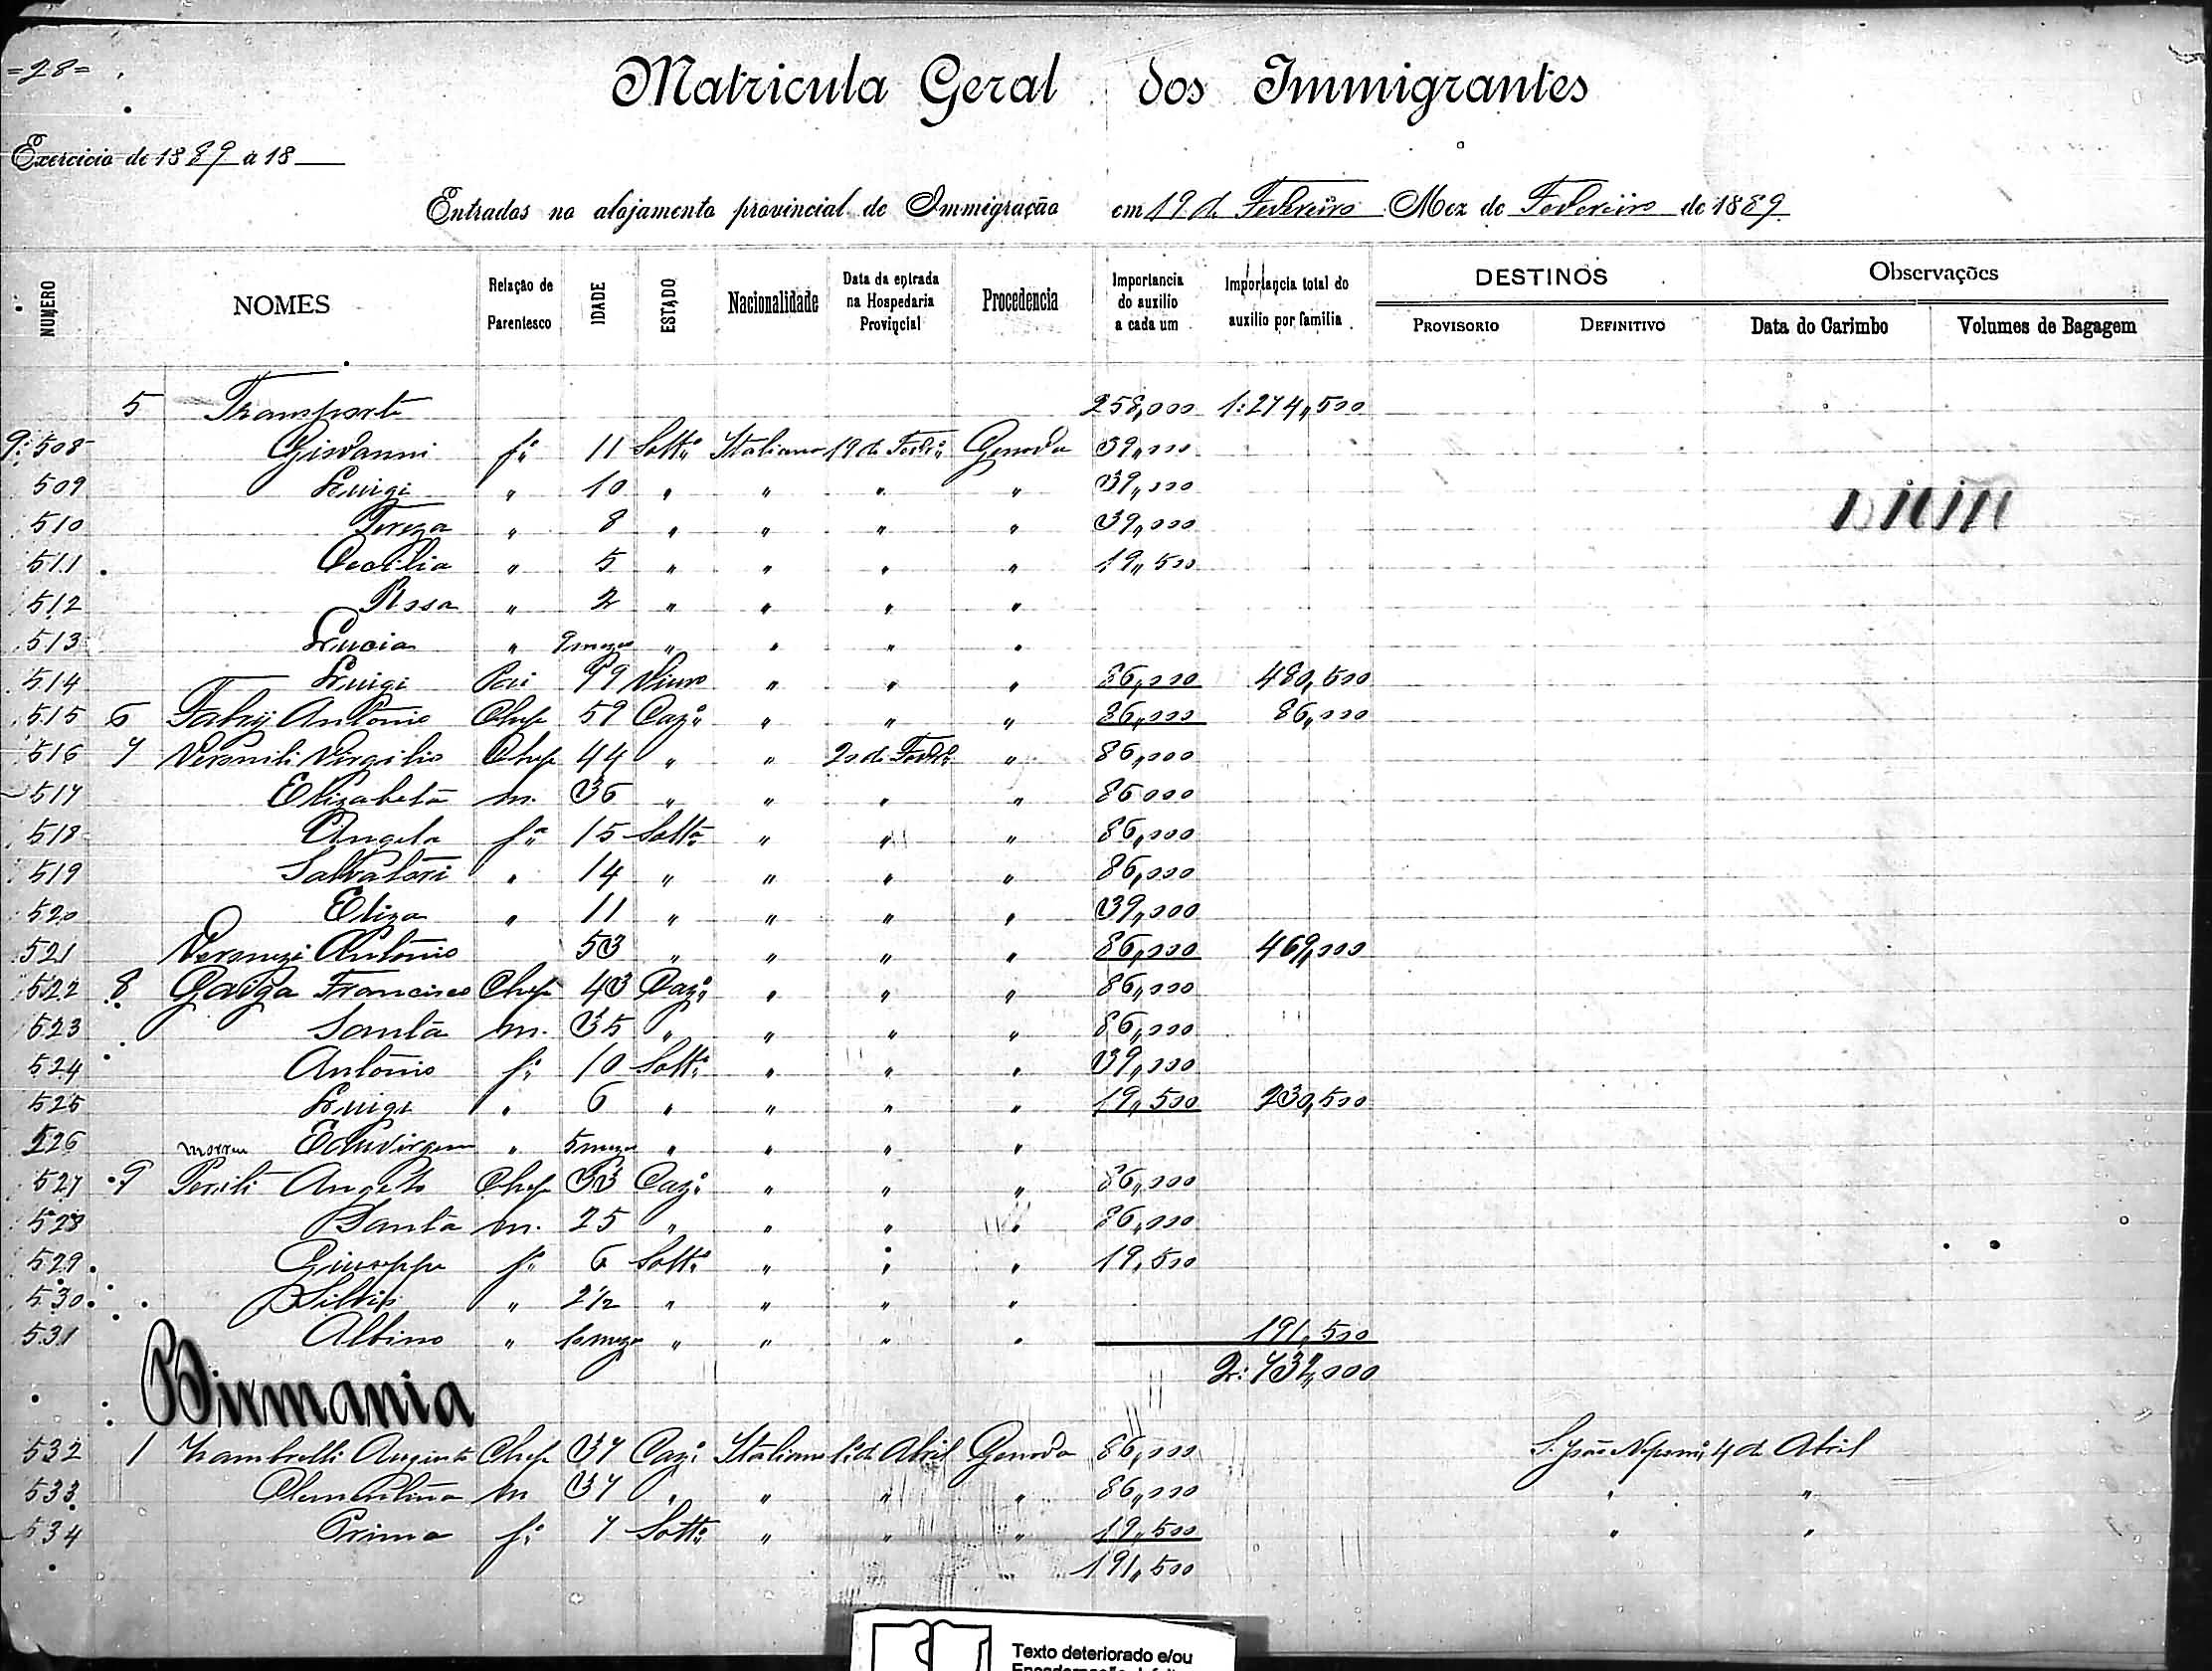 =28=
Matricula Geral dos Immigrantes
Exercicio de 1889 a 18
Entrados no alojamento provincial de Immigração em 19 de Fevereiro Mez de Fevereiro de 1889
NUMERO NOMES Relação de Parentesco IDADE ESTADO Nacionalidade Data da entrada na Hospedaria Provincial Procedencia Importancia do auxilio a cada um Importancia total do auxilio por familia DESTINOS PROVISORIO DEFINITIVO Observações Data do Carimbo Volumes de Bagagem
5 Transporte 258,000 1:274,500
9:508 Giovanni fo 11 Solto Italiano 19 de Fevro Genova 39,000
509 Luigi " 10 " " " " 39,000
510 Tereza " 8 " " " " 39,000
511 Cecilia " 5 " " " " 19,500
512 Rosa " 2 " " " "
513 Lucia " 9 mezes " " " "
514 Luigi Pai Viuvo " " " 86,000 480,500
515 6 Fabry Antonio Chefe 59 Cazo " " " 86,000 86,000
516 7 Virgilio Chefe 44 " " 20 de Fevro " 86,000
517 Elizabeta m. 36 " " " " 86000
518 Angela fa 15 Solta " " " 86,000
519 Salvatori " 14 " " " " 86,000
520 Eliza " 11 " " " " 39,000
521 Antonio 53 " " " " 86,000 469,000
522 8 Francisco Chefe 43 Cazo " " " 86,000
523 Santa m. 35 " " " " 86,000
524 Antonio fo 10 Solto " " " 39,000
525 Luigi " 6 " " " " 19,500 230,500
526 morreu Edwirgem " 5 mezes " " " "
527 9 Angelo Chefe 33 Cazo " " " 86,000
528 Santa m. 25 " " " " 86,000
529 Giuseppe fo 6 Solto " " " 19,500
530 Silvio " 2 1/2 " " " "
531 Albino " 10 mezes " " " " 191,500
2:732,000
Birmania
532 1 Chefe 37 Cazo Italiano 1o de Abril Genova 86,000 S. João Nepom. 4 de Abril
533 Clementina m 37 " " " " 86,000 " "
534 Prima fa 7 Solta " " " 19,500 " "
191,500
Texto deteriorado e/ou